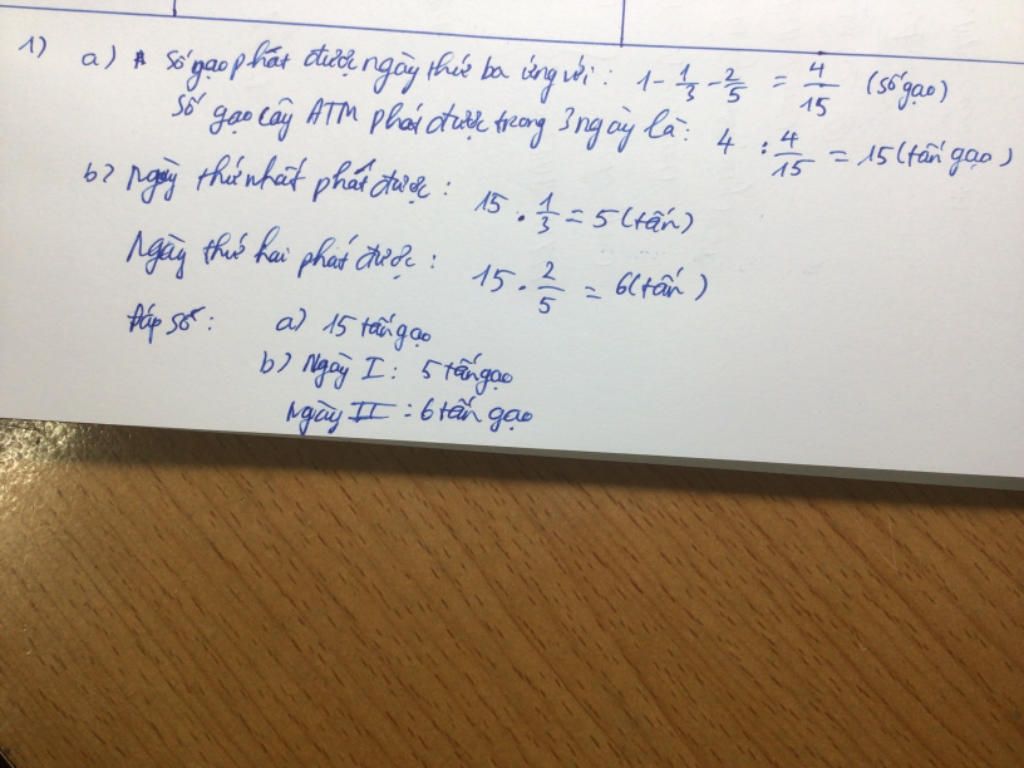 1) a) Số gạo phát được ngày thứ ba ứng với: 1 - 1/3 - 2/5 = 4/15 (số gạo)
Số gạo cây ATM phát được trong 3 ngày là: 4 : 4/15 = 15 (tấn gạo)
b) Ngày thứ nhất phát được: 15 . 1/3 = 5 (tấn)
Ngày thứ hai phát được: 15 . 2/5 = 6 (tấn)
Đáp số: a) 15 tấn gạo
b) Ngày I: 5 tấn gạo
Ngày II: 6 tấn gạo